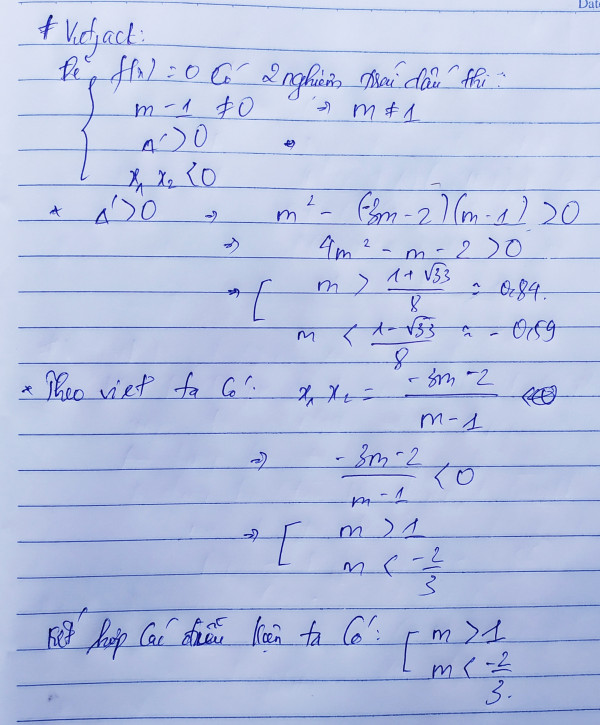 Date
* Viet,act:
Để f(x) = 0 có 2 nghiệm trái dấu thì:
m - 1 ≠ 0 => m ≠ 1
Δ' > 0 =>
x₁ x₂ < 0
* Δ' > 0 => m² - (-3m - 2)(m - 1) > 0
=> 4m² - m - 2 > 0
=> [ m > (1 + √33)/8 ≈ 0,84.
m < (1 - √33)/8 ≈ - 0,59
* Theo viet ta có: x₁ x₂ = (-3m - 2)/(m - 1)
=> (-3m - 2)/(m - 1) < 0
=> [ m > 1
m < -2/3
Kết hợp các điều kiện ta có: [ m > 1
m < -2/3.